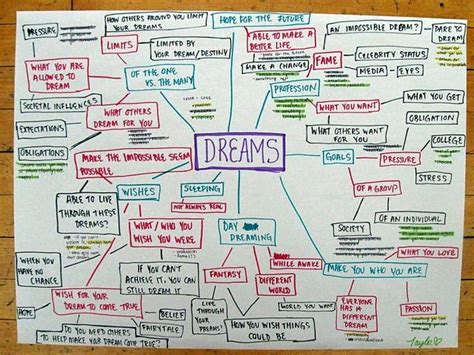 PRESSURE
HOW OTHERS AROUND YOU LIMIT
YOUR DREAMS
HOPE FOR THE FUTURE
AN IMPOSSIBLE DREAM?
DARE TO
DREAM
LIMITS
LIMITED BY
YOUR DREAM/DESTINY
ABLE TO MAKE A
BETTER LIFE.
FAME
CELEBRITY STATUS
MEDIA - EYES
WHAT YOU ARE
ALLOWED TO
DREAM
OF THE ONE
VS. THE MANY
MAKE A CHANGE
PROFESSION
WHAT YOU WANT
WHAT YOU GET
SOCIETAL INFLUENCES
WHAT OTHERS
DREAM FOR YOU
WHAT OTHERS
WANT FOR YOU
OBLIGATION
EXPECTATIONS
COLLEGE
OBLIGATIONS
MAKE THE IMPOSSIBLE SEEM
POSSIBLE
DREAMS
GOALS
PRESSURE
STRESS
WISHES
SLEEPING
NOT ALWAYS REAL
OF A GROUP
ABLE TO LIVE
THROUGH THESE
DREAMS?
WHAT / WHO YOU
WISH YOU WERE
DAY
DREAMING
OF AN INDIVIDUAL
SOCIETY
WHEN YOU
HAVE NO
CHANCE
IF YOU CAN'T
ACHIEVE IT, YOU CAN
STILL DREAM IT
FANTASY
WHILE AWAKE
DIFFERENT
WORLD
MAKE YOU WHO YOU ARE
WHAT YOU LOVE
HOPE
WISH FOR YOUR
DREAM TO COME TRUE?
BELIEF
FAIRYTALE
LIVE
THROUGH
YOUR
DREAMS?
WORLD YOU WANT
HOW YOU WISH THINGS COULD
BE
EVERYONE
HAS A
DIFFERENT
DREAM
PASSION
DO YOU NEED OTHERS
TO HELP MAKE YOUR DREAM COME TRUE?
Taylor